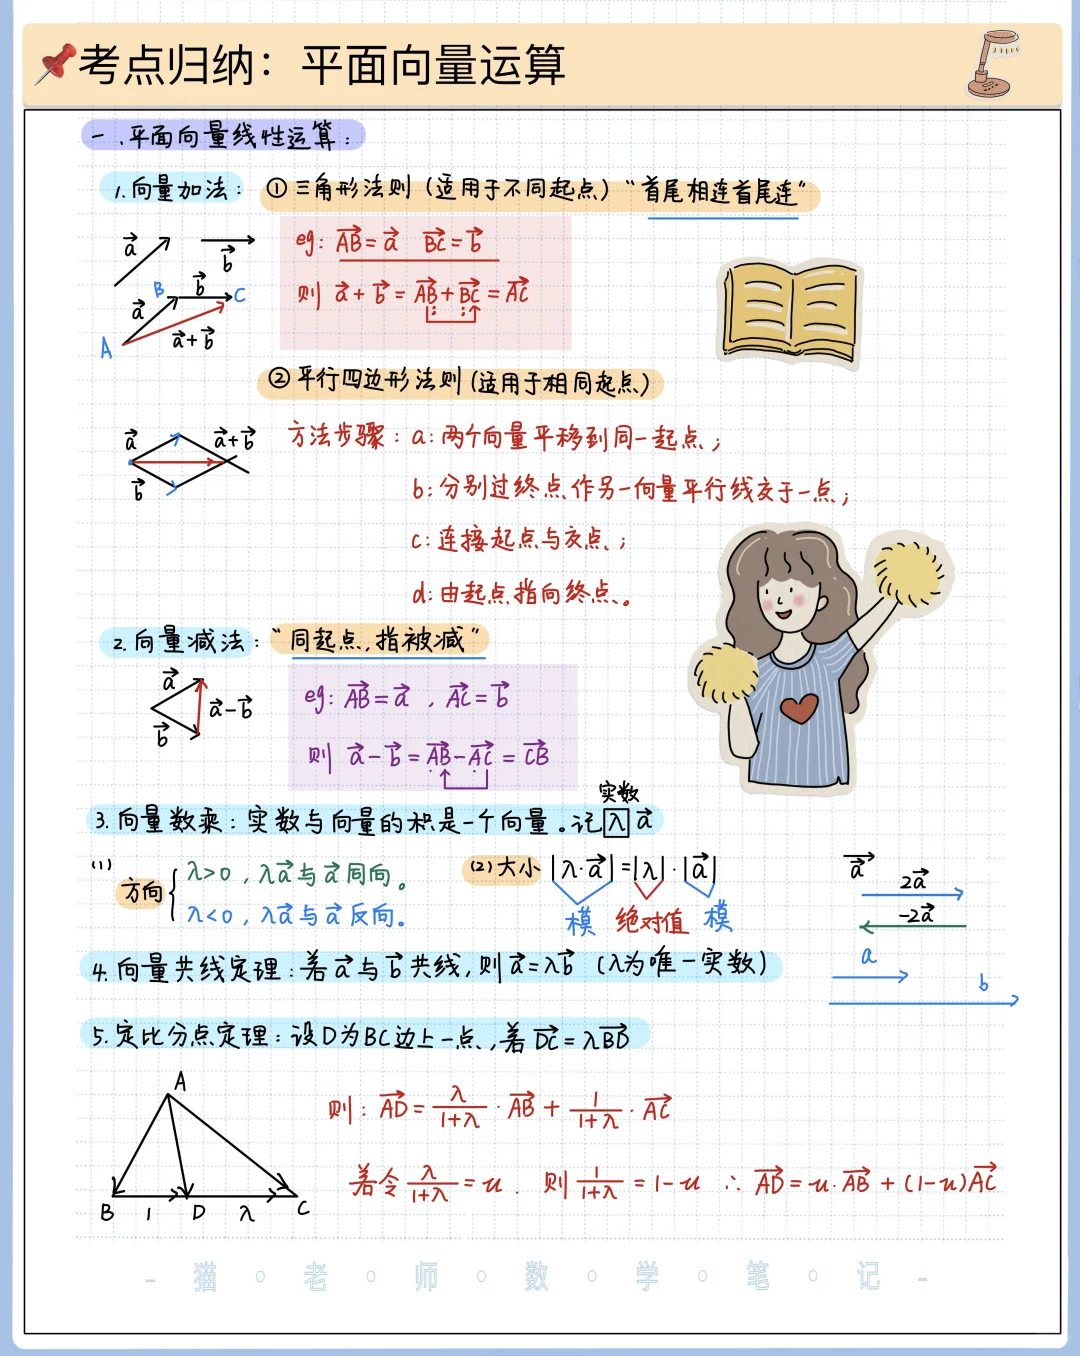 考点归纳：平面向量运算
一.平面向量线性运算：
1.向量加法： ①三角形法则（适用于不同起点）“首尾相连首尾连”
a⃗ b⃗
eg: AB⃗=a⃗ BC⃗=b⃗
B b⃗ C
a⃗
则 a⃗+b⃗=AB⃗+BC⃗=AC⃗
A a⃗+b⃗
②平行四边形法则(适用于相同起点)
a⃗ a⃗+b⃗
b⃗
方法步骤：a:两个向量平移到同一起点；
b:分别过终点作另一向量平行线交于一点；
c:连接起点与交点；
d:由起点指向终点。
2.向量减法：“同起点,指被减”
a⃗ a⃗-b⃗
b⃗
eg: AB⃗=a⃗ ,AC⃗=b⃗
则 a⃗-b⃗=AB⃗-AC⃗=CB⃗
实数
3.向量数乘：实数与向量的积是一个向量。记λa⃗
(1)
方向
λ>0,λa⃗与a⃗同向。
λ<0,λa⃗与a⃗反向。
(2)大小 |λ·a⃗|=|λ|·|a⃗|
模 绝对值 模
a⃗
2a⃗
-2a⃗
a
b
4.向量共线定理：若a⃗与b⃗共线,则a⃗=λb⃗ (λ为唯一实数)
5.定比分点定理：设D为BC边上一点,若DC⃗=λBD⃗
A
B 1 D λ C
则：AD⃗=λ/(1+λ)·AB⃗+1/(1+λ)·AC⃗
若令λ/(1+λ)=u. 则1/(1+λ)=1-u ∴AD⃗=u·AB⃗+(1-u)AC⃗
- 猫 · 老 · 师 · 数 · 学 · 笔 · 记 -